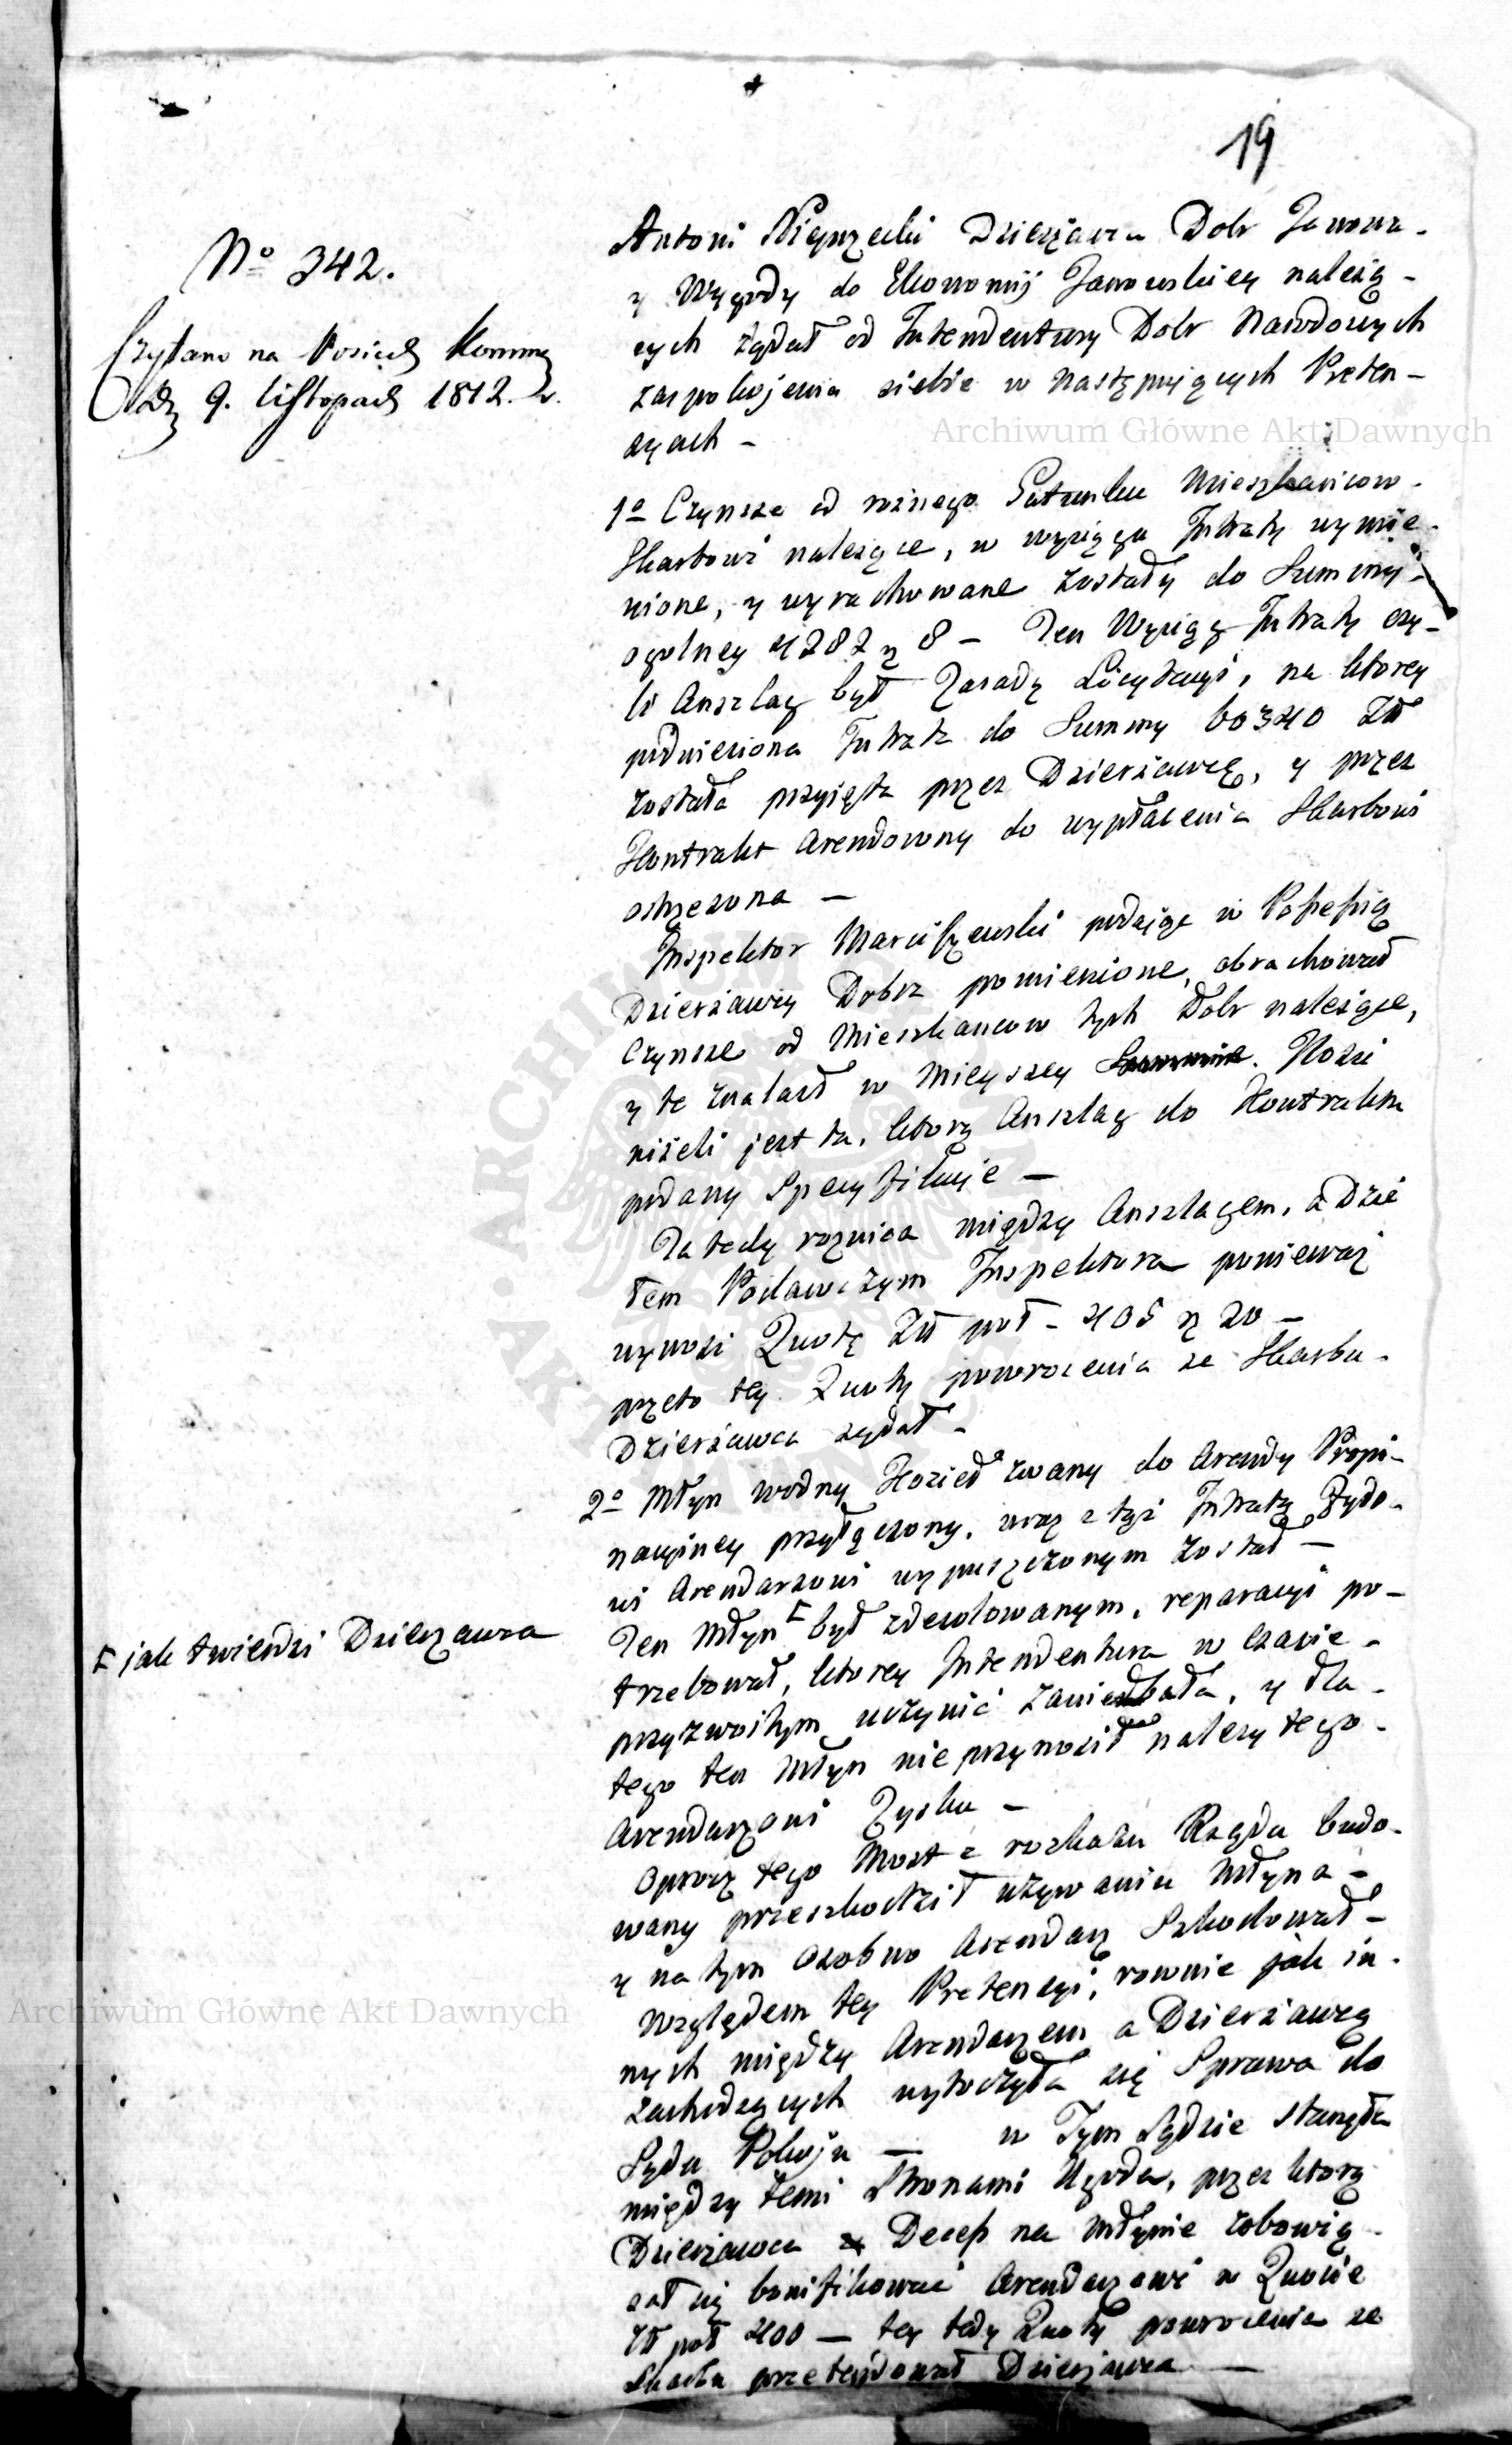 19
Nº 342.
Czytano na Posied. Kommis
Dn 9. listopad 1812. r.
Antoni Dzierżawca Dobr Janowa
y Wygody do Ekonomij Janowskiey należą-
cych żądał od Intendentury Dobr Narodowych
zaspokojenia siebie w następuiących Preten-
syach –
1º Czynsze od rożnego Gatunku Mieszkancow
Skarbowi należące, w wyciągu Intraty wymie-
nione, y wyrachowane zostały do Summy
ogolney 4282 g 8 – Ten Wyciąg Intraty czy-
li Anszlag był Zasadą Licytacyi, na ktorey
podniesiona Intrata do Summy 60340 Złł
została przyięta przez Dzierżawcę, y przez
Kontrakt Arendowny do wypłacenia Skarbowi
ostrzeżona –
Inspektor Marciszewski podaiąc w Possessią
Dzierżawcy Dobra pomienione, obrachował
Czynsze od Mieszkancow tych Dobr należące,
y te znalazł w mieyszey Ilości
niżeli jest ta, ktorą Anszlag do Kontraktu
podany Specyfikuje –
Ta tedy rożnica między Anszlagem, a Dzie
łem Podawczym Inspektora ponieważ
wynosi Quotę Złł pol – 405 g 20 –
przeto tey Quoty powrocenia ze Skarbu
Dzierżawca żądał –
2º Młyn wodny Kozieł zwany do Arendy Propi-
nacyiney przyłączony, wraz z tąż Intratą Żydo-
wi Arendarzowi wypuszczonym został –
Ten Młyn Γ był zdezolowanym, reparacyi po-
Γ jak twierdzi Dzierżawca
trzebował, ktorey Intendentura w czasie
przyzwoitym uczynić zaniedbała, y dla
tego ten Młyn nie przynosił należytego
Arendarzowi Zysku –
Oprocz tego Most z rozkazu Rządu budo-
wany przeszkodził używaniu Młyna –
y na tym osobno Arendarz Szkodował –
Względem tey Pretensyi, rownie jak in-
nych między Arendarzem a Dzierżawcą
zachodzących wytoczyła się Sprawa do
Sądu Pokoju – w Tym Sądzie stanęła
między temi Stronami Ugoda, przez ktorą
Dzierżawca Decess na Młynie zobowią-
zał się bonifikować Arendarzowi w Quocie
Zł pol 400 – tey tedy Quoty powrocenia ze
Skarbu pretendował Dzierżawca –
Archiwum Główne Akt Dawnych
Archiwum Główne Akt Dawnych